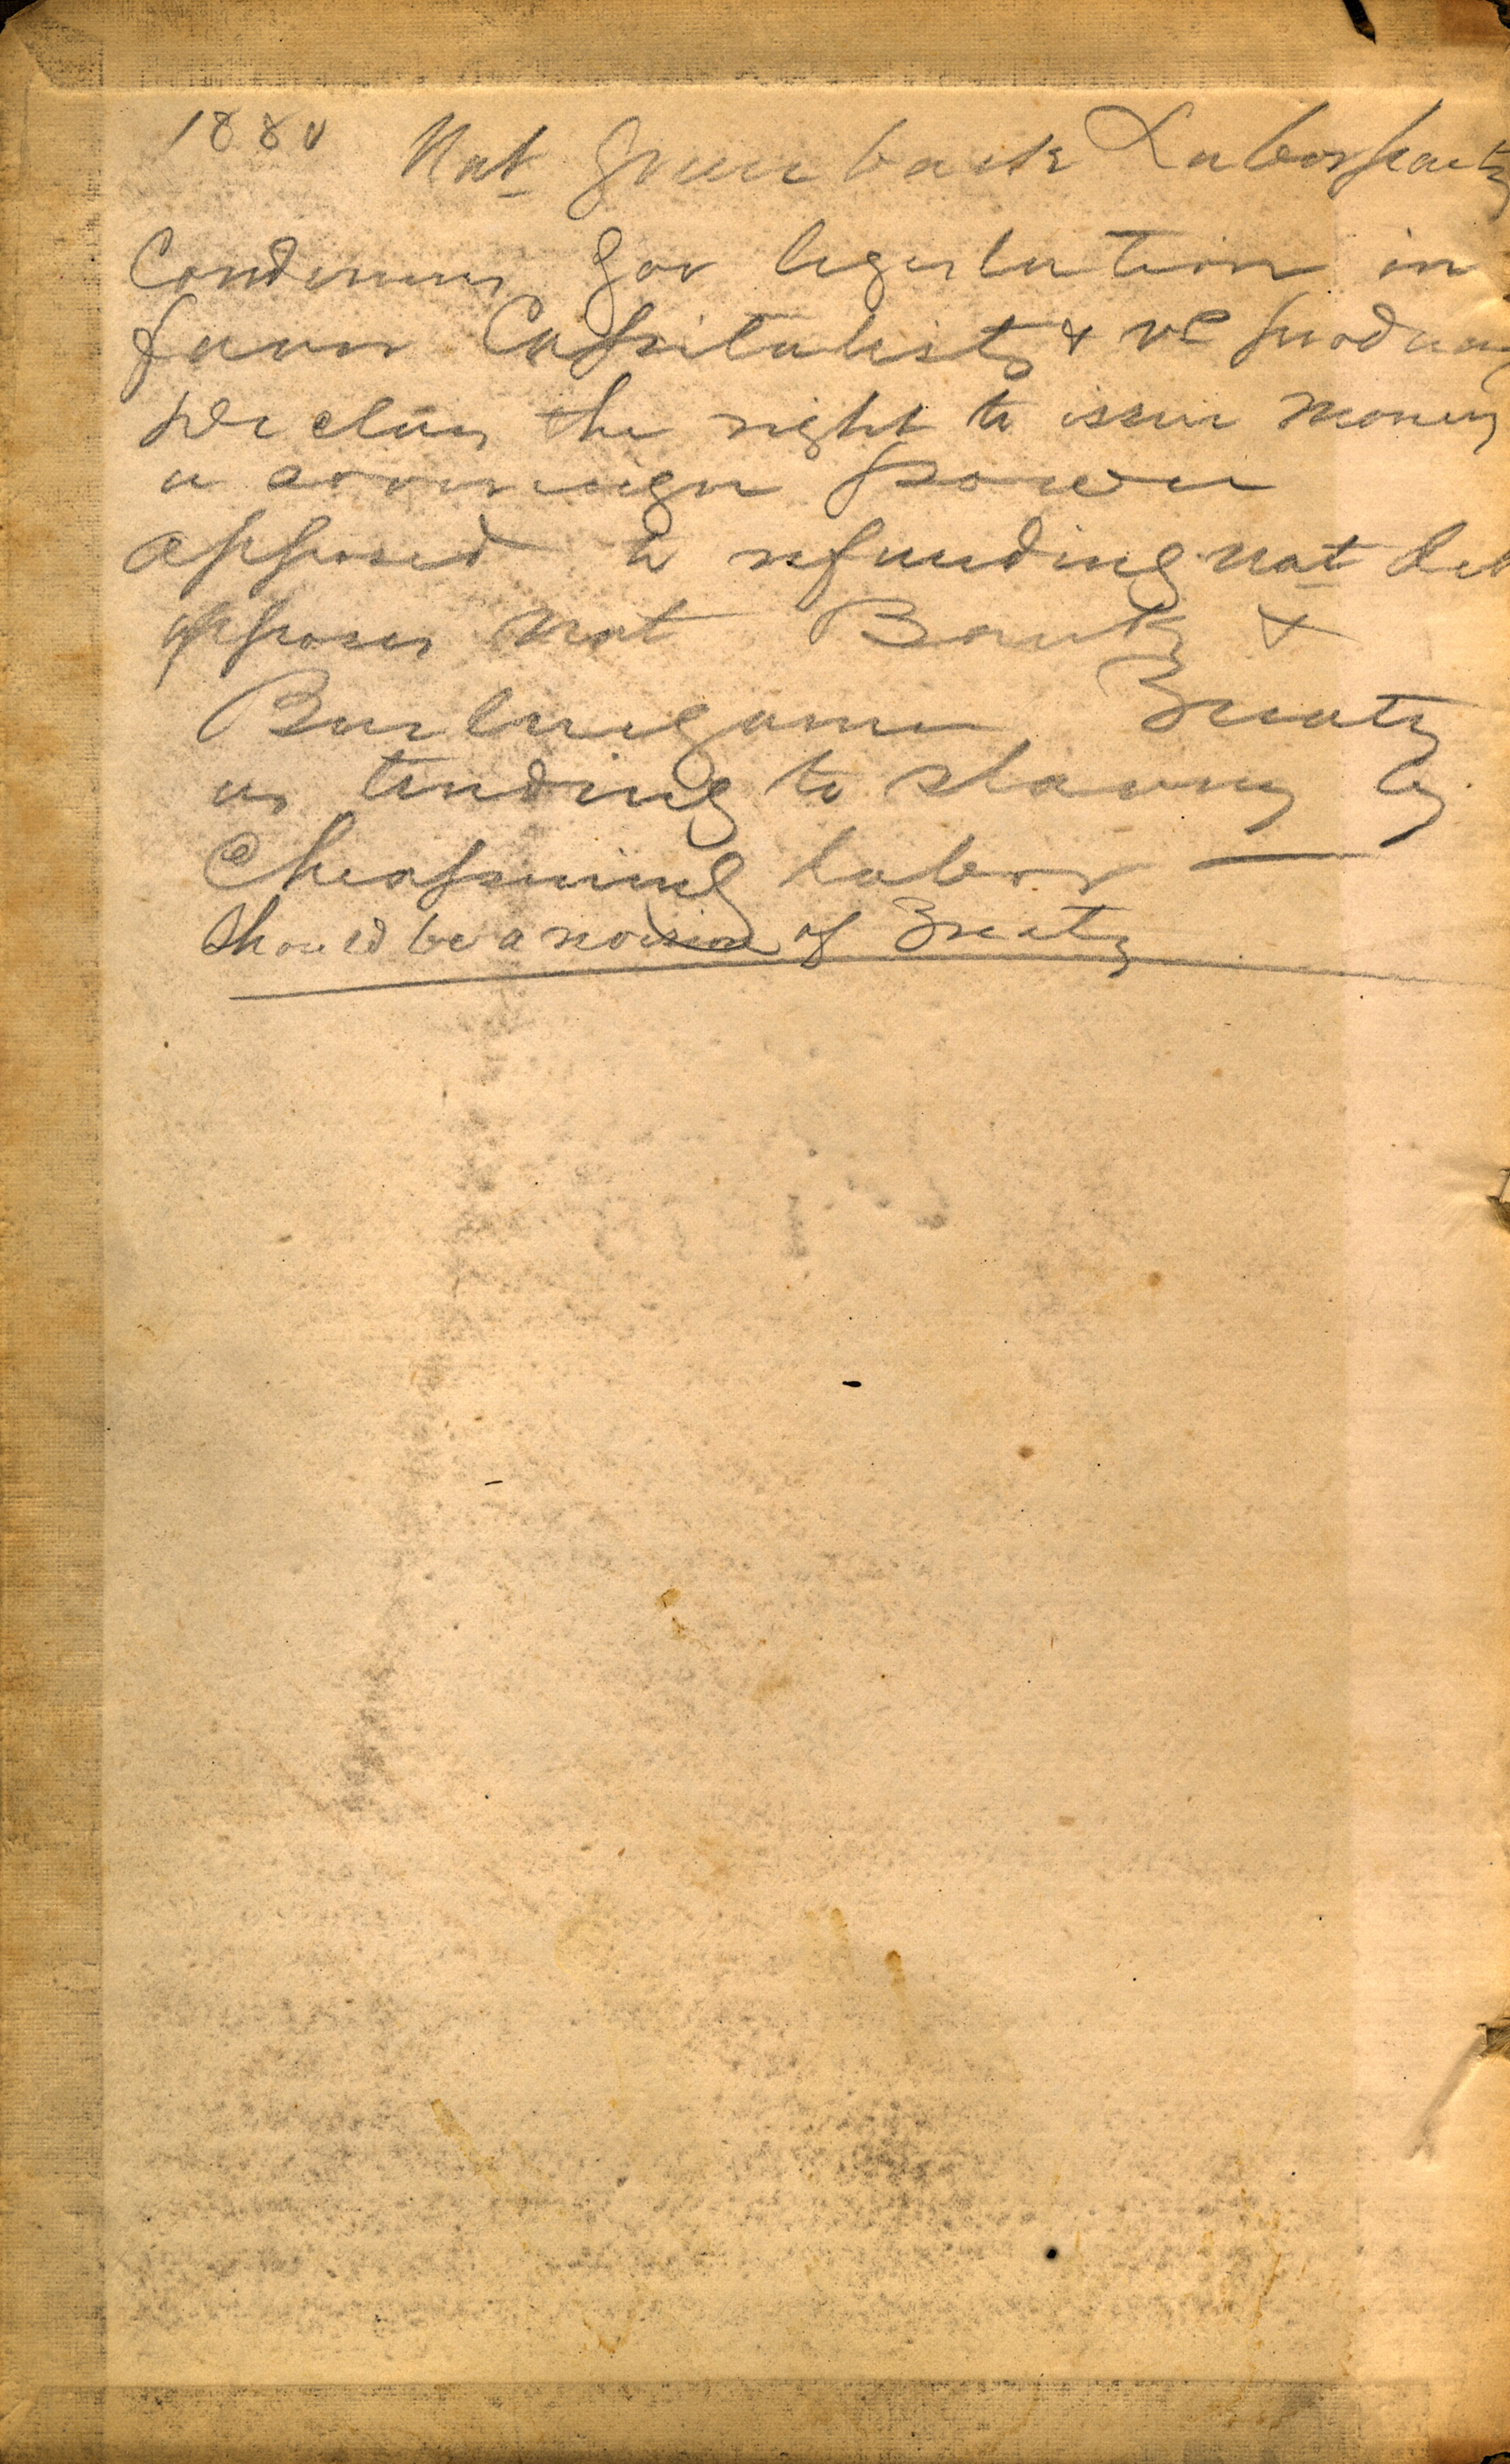 1880 Nat Greenback Labor party
Condemns Gov legislation in
favor Capitalists & vs
Declares the right to issue money
a sovereign power
opposed to refunding Nat deb
opposes Nat Banks &
Burlingame Treaty
as tending to slavery by
Cheapening labor —
Should be a revision of Treaty